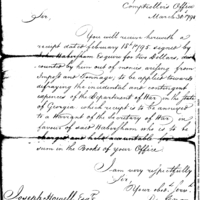 Comptroller's Office
March 30 179
Sir,
You will receive herewith a
receipt dated February 18th 1795 signed by
John Habersham Esquire for five Dollars,
counted by him out of monies arising from
Imposts and Tonnage, to be applied towards
defraying the incidental and contingent
expenses of the Department of War, in the State
of Georgia which receipt is to be annexed
to a Warrant of the Secretary of War, in
favor of said Habersham and is to be
charged and
sum in the Books of your Office
I am very respectfully
Sir,
Your Obt. Serv.
Joseph Howell Esqr.